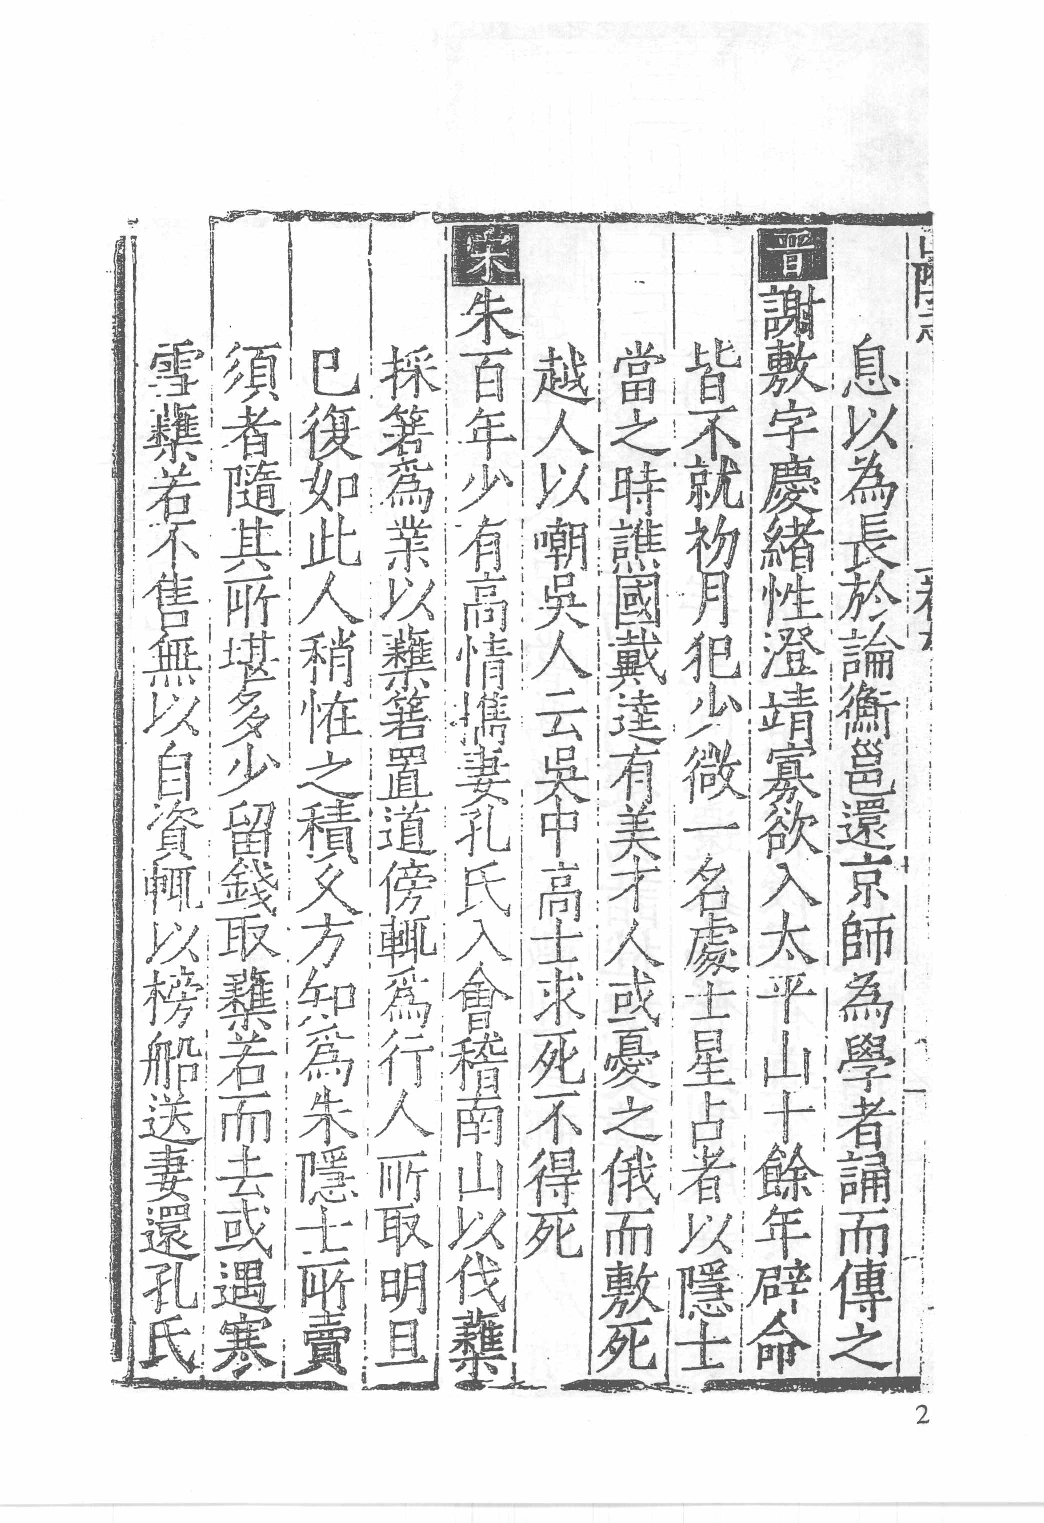 息以為長於論衡邕還京師為學者誦而傳之
晋謝敷字慶緒性澄靖寡欲入太平山十餘年辟命
皆不就初月犯少微一名處士星占者以隱士
當之時譙國戴逵有美才人或憂之俄而敷死
越人以嘲吳人云吳中高士求死不得死
宋朱百年少有高情携妻孔氏入會稽南山以伐蘽
採箬爲業以蘽箬置道傍輒爲行人所取明旦
已復如此人稍恠之積久方知爲朱隱士所賣
須者隨其所堪多少留錢取蘽若而去或遇寒
雪蘽若不售無以自資輒以榜船送妻還孔氏
2